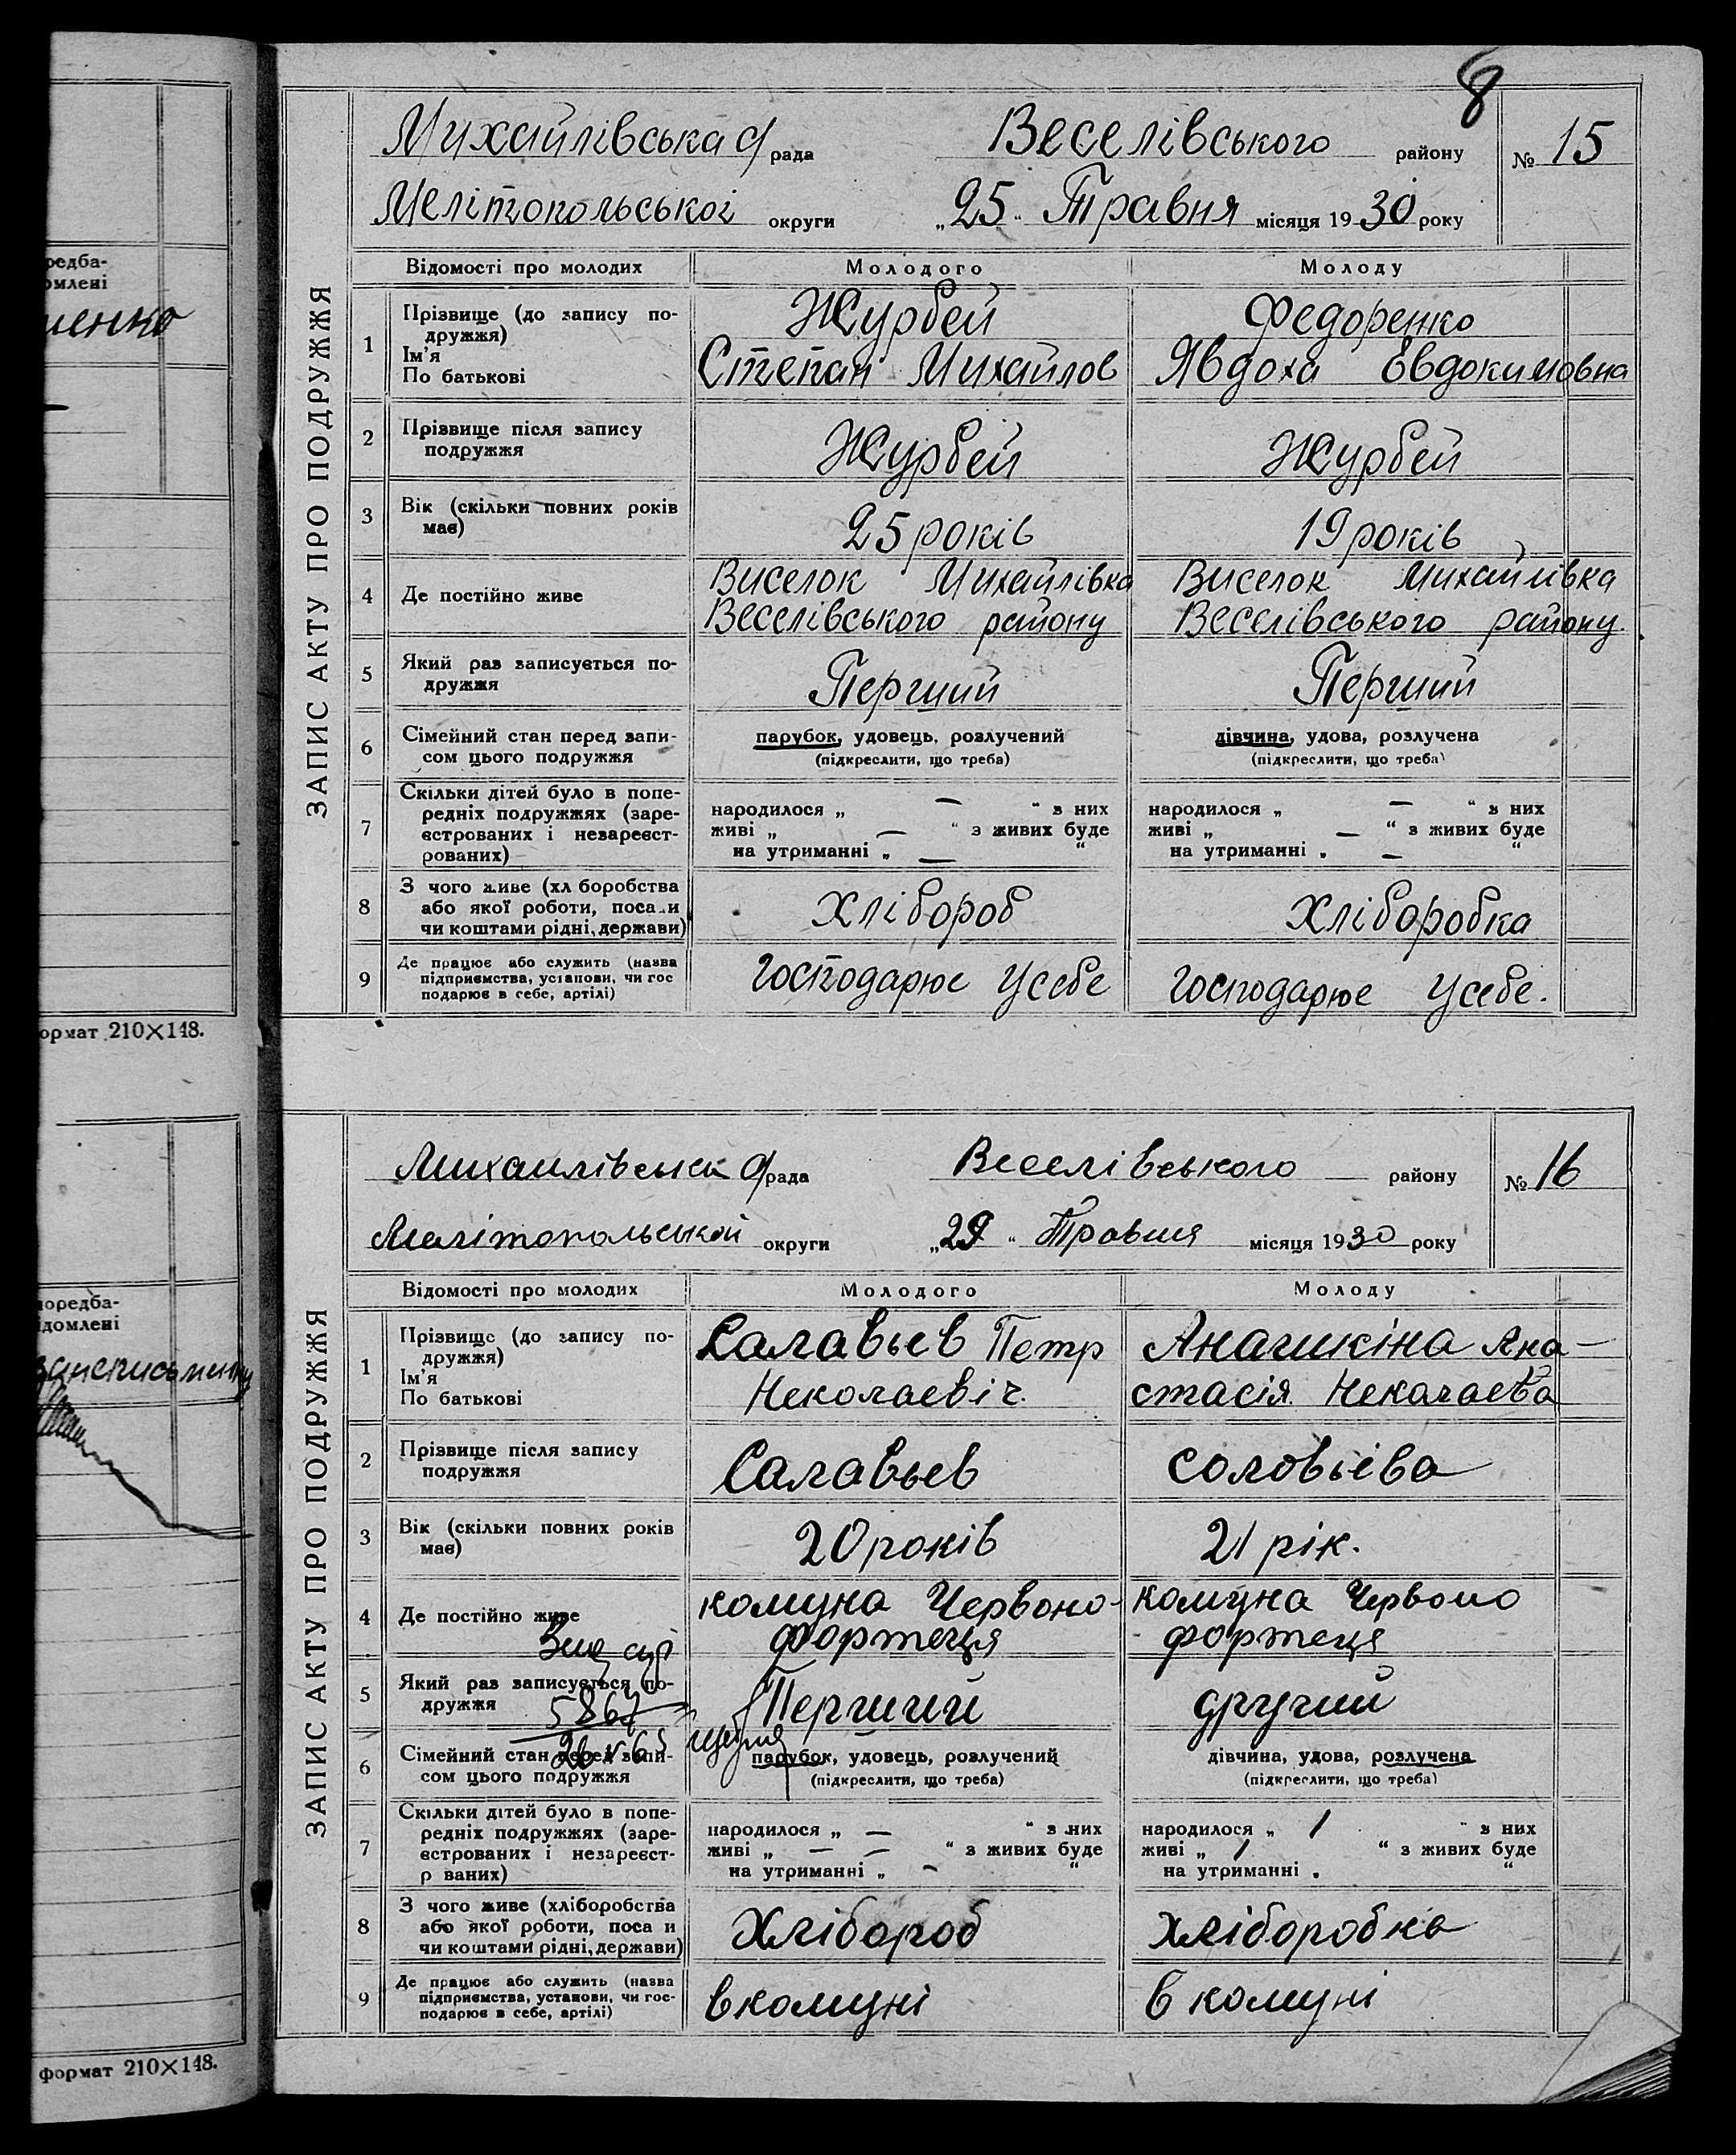 8
Михайлівська с/рада Веселівського району № 15
Мелітопольської округи „25“ Травня місяця 1930 року
ЗАПИС АКТУ ПРО ПОДРУЖЖЯ
Відомості про молодих Молодого Молоду
1 Прізвище (до запису по- Журбей Федоренко
дружжя)
Ім'я Степан Михайлов Явдоха Евдокимовна
По батькові
2 Прізвище після запису Журбей Журбей
подружжя
3 Вік (скільки повних років 25 років 19 років
має)
4 Де постійно живе Виселок Михайлівка Виселок Михайлівка
Веселівського району Веселівського району
5 Який раз записується по- Перший Перший
дружжя
6 Сімейний стан перед запи- парубок, удовець, розлучений дівчина, удова, розлучена
сом цього подружжя (підкреслити, що треба) (підкреслити, що треба)
7 Скільки дітей було в попе-
редніх подружжях (заре- народилося „ — “ з них народилося „ — “ з них
єстрованих і незареєст- живі „ — “ з живих буде живі „ — “ з живих буде
рованих) на утриманні „ — “ на утриманні „ — “
8 З чого живе (хл боробства Хлібороб Хліборобка
або якої роботи, поса и
чи коштами рідні, держави)
9 Де працює або служить (назва Господарює усебе Господарює усебе.
підприємства, установи, чи гос
подарює в себе, артілі)
Михаилівська с/рада Веселівського району № 16
Мелітопольської округи „29“ Травня місяця 1930 року
ЗАПИС АКТУ ПРО ПОДРУЖЖЯ
Відомості про молодих Молодого Молоду
1 Прізвище (до запису по- Салавьев Петр Анашкіна Ана-
дружжя)
Ім'я Неколаевіч. стасія Неколаева
По батькові
2 Прізвище після запису Салавьев Соловьёва
подружжя
3 Вік (скільки повних років 20 років 21 рік.
має)
4 Де постійно живе комуна Червоно- комуна Червоно
фортеця фортеця
5 Який раз записується по- Перший другий
дружжя
5867
6 Сімейний стан перед запи- парубок, удовець, розлучений дівчина, удова, розлучена
сом цього подружжя (підкреслити, що треба) (підкреслити, що треба)
7 Скільки дітей було в попе-
редніх подружжях (заре- народилося „ — “ з них народилося „ 1 “ з них
єстрованих і незареєст- живі „ — — “ з живих буде живі „ 1 “ з живих буде
р ваних) на утриманні „ - “ на утриманні „ “
8 З чого живе (хліборобства Хлібороб хліборобка
або якої роботи, поса и
чи коштами рідні, держави)
9 Де працює або служить (назва в комуні в комуні
підприємства, установи, чи гос-
подарює в себе, артілі)
редба-
омлені
енко
ормат 210×148.
поредба-
ідомлені
формат 210×148.